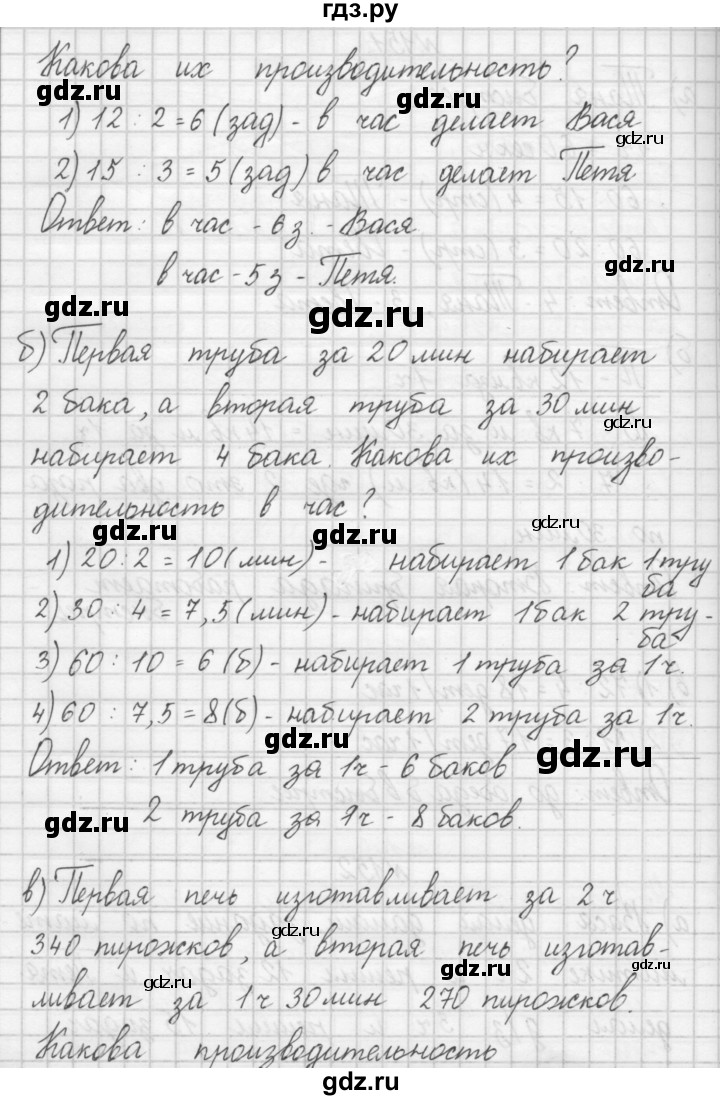 гдз.ру
Какова их производительность?
gdz.ru gdz.ru
1) 12 : 2 = 6 (зад) - в час делает Вася
gdz.ru
2) 15 : 3 = 5 (зад) в час делает Петя
Ответ: в час - 6 з. - Вася
gdz.ru
в час - 5 з - Петя.
gdz.ru gdz.ru
б) Первая труба за 20 мин набирает
2 бака, а вторая труба за 30 мин
gdz.ru
набирает 4 бака. Какова их произво-
дительность в час?
gdz.ru gdz.ru gdz.ru
1) 20 : 2 = 10 (мин) - набирает 1 бак 1 тру
ба
2) 30 : 4 = 7,5 (мин) - набирает 1 бак 2 тру-
ба
3) 60 : 10 = 6 (б) - набирает 1 труба за 1 ч.
4) 60 : 7,5 = 8 (б) - набирает 2 труба за 1 ч.
gdz.ru gdz.ru
Ответ: 1 труба за 1 ч - 6 баков
gdz.ru
2 труба за 1 ч - 8 баков.
в) Первая печь изготавливает за 2 ч
gdz.ru
340 пирожков, а вторая печь изготав-
gdz.ru gdz.ru
ливает за 1 ч 30 мин 270 пирожков.
Какова производительность
gdz.ru